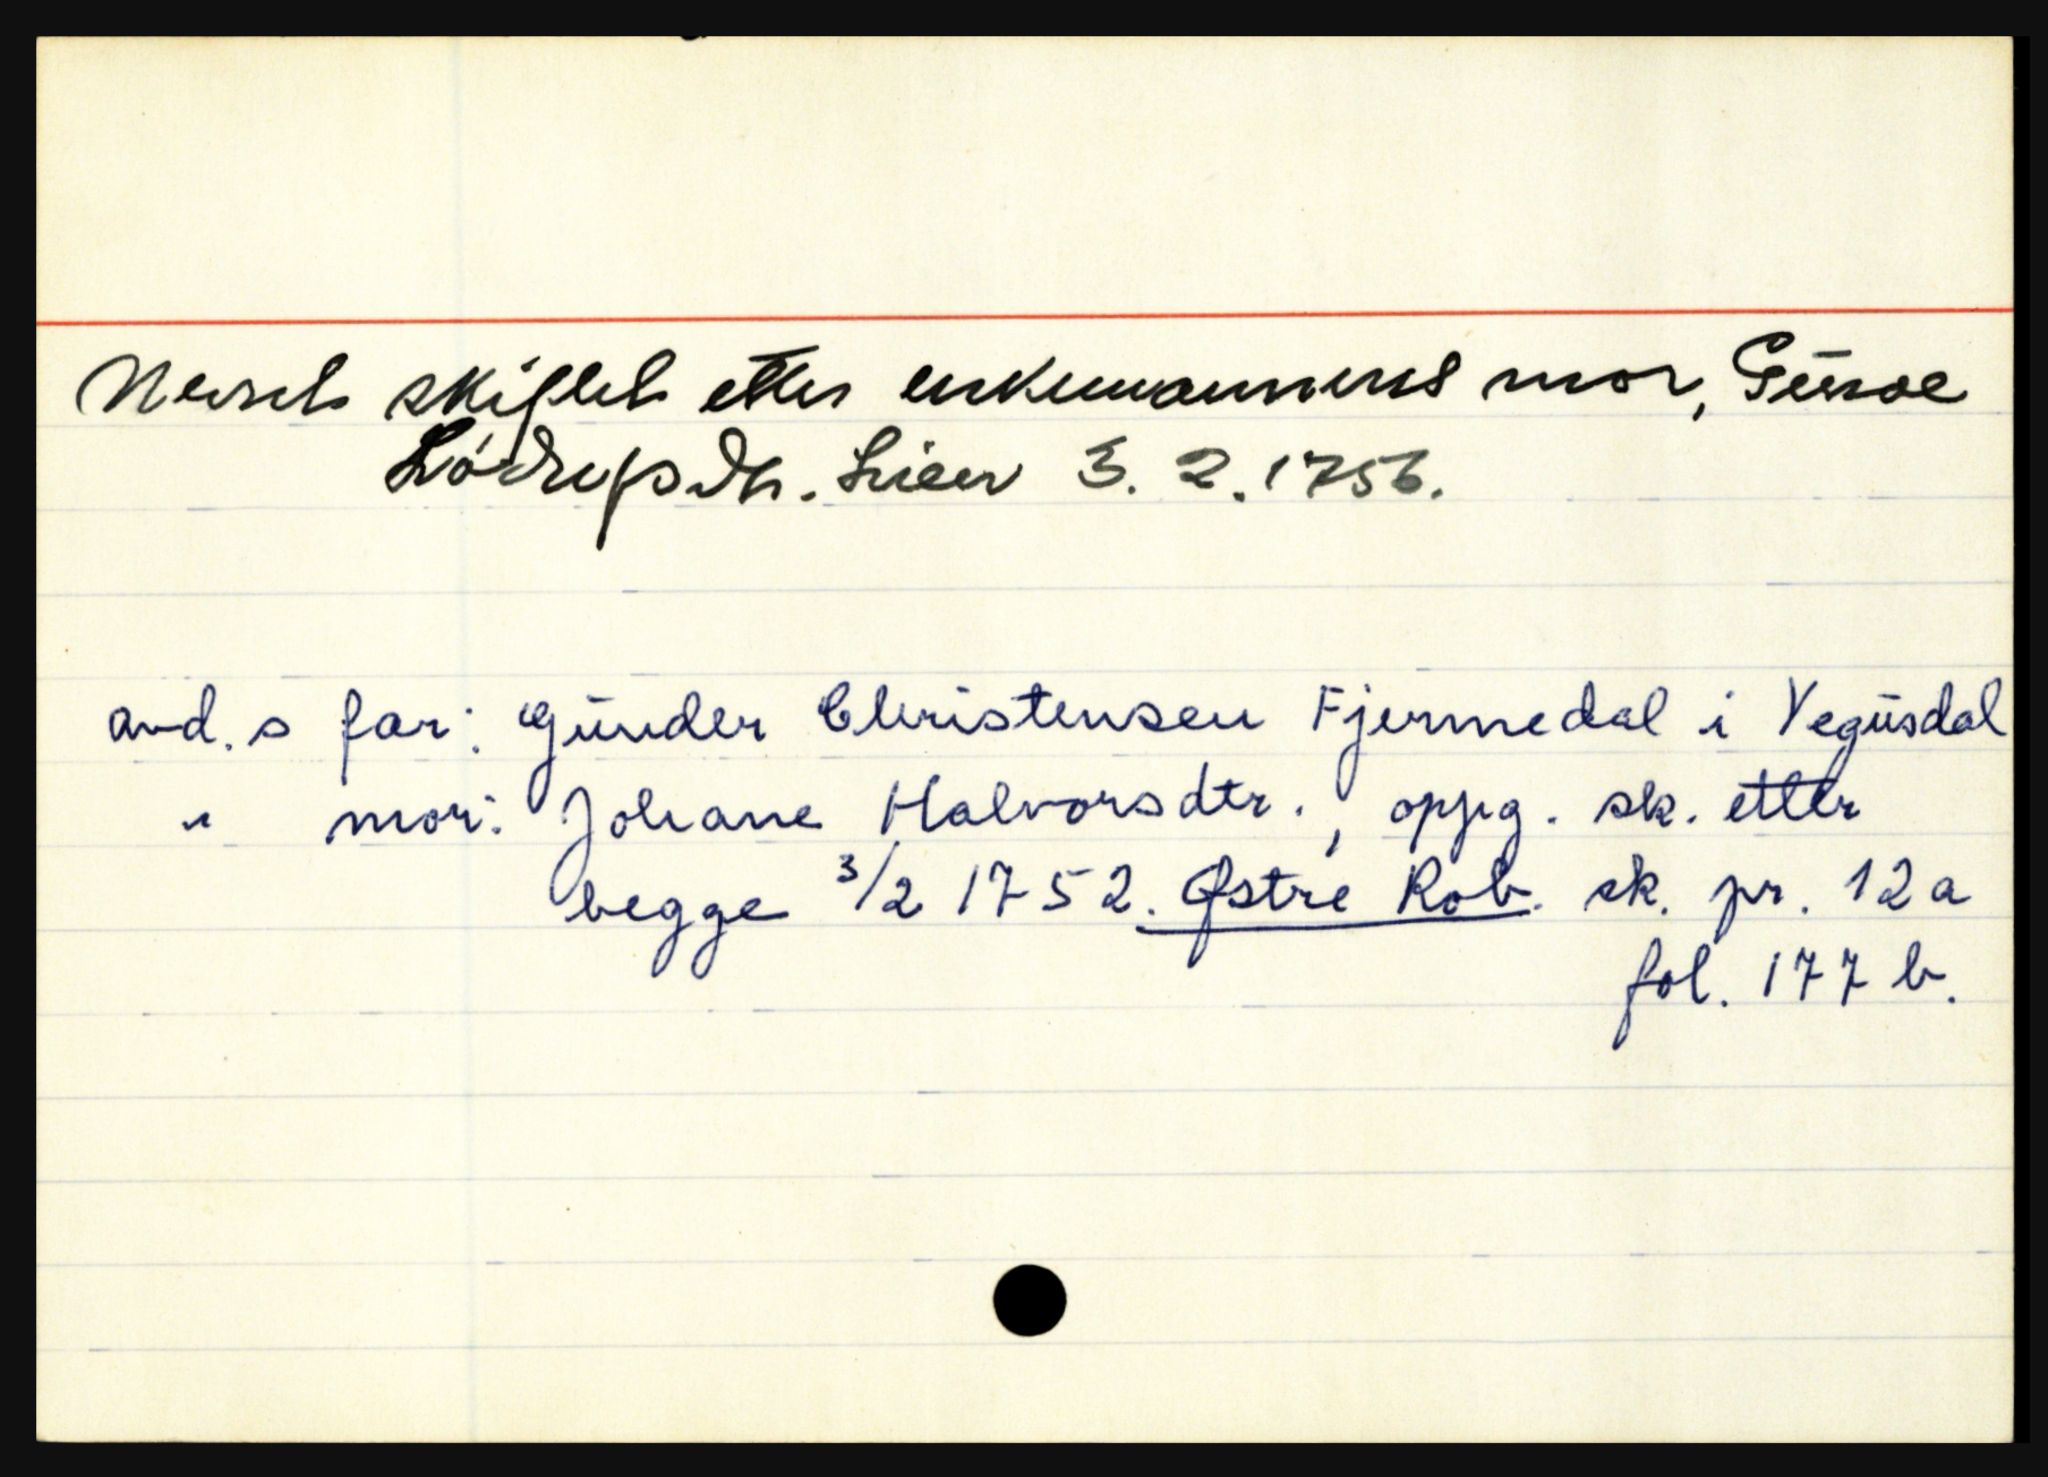 Nevnt skiftet etter enkemannens mor, Gunne
Lódrupsdtr. Lien 3. 2. 1756.
avd. s far: Gunder Christensen Fjermedal i Vegusdal
" mor: Johane Halvorsdtr., oppg. sk. etter
begge 3/2 1752. Østre Rob. sk. pr. 12a
fol. 177 b.